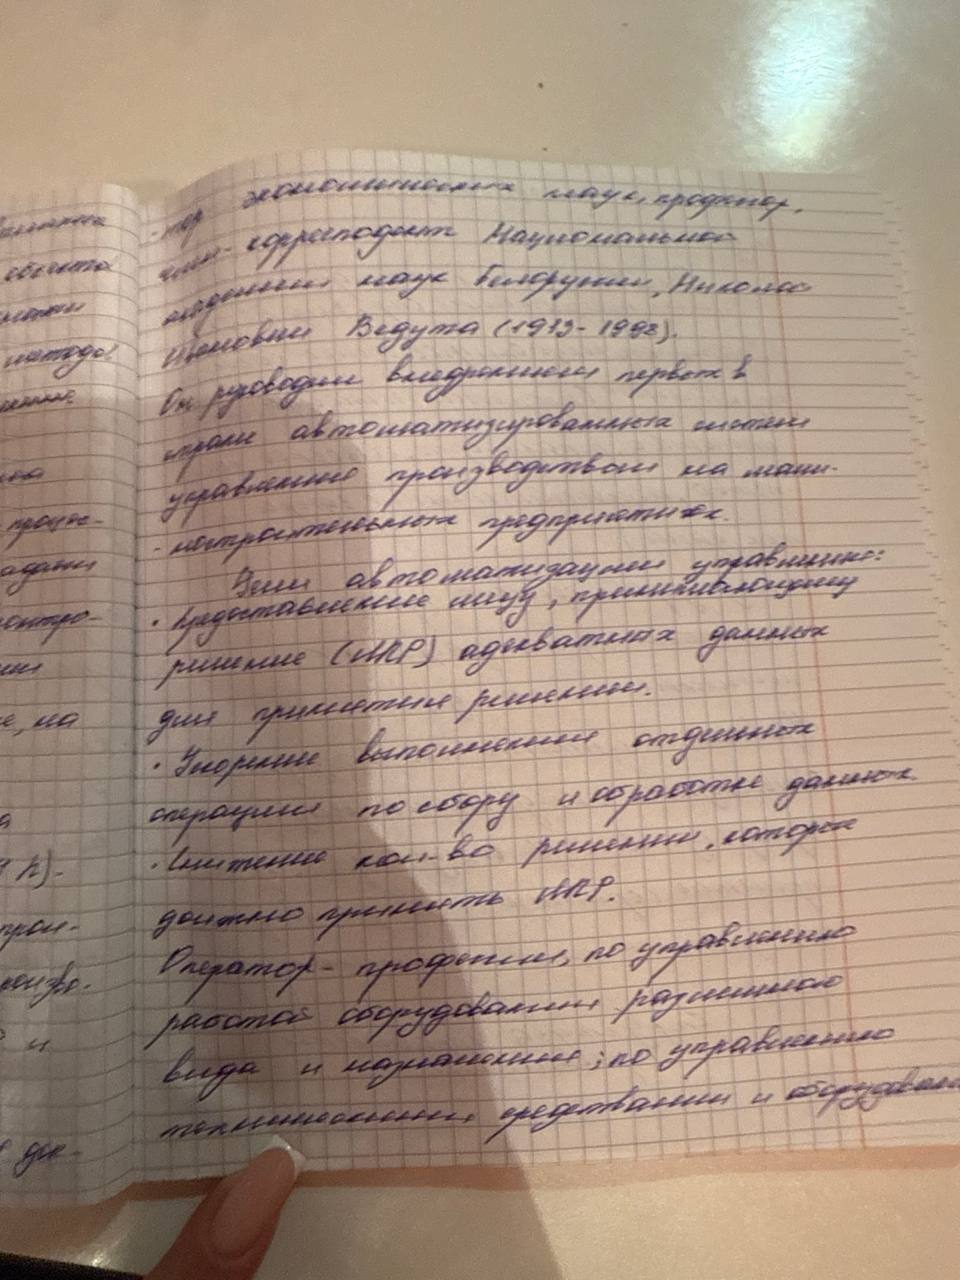 обьекта
процес-
задани
контро-
е, на
а
прои-
произво-
и
док-
-тор экономических наук, профессор,
член-корреспондент Национальной
академии наук Белорусии, Николай
Иванович Ведута (1913-1998).
Он руководил внедрением первых в
стране автоматизированных систем
управления производством на маши-
-ностроительных предприятиях.
Цели автоматизации управления:
• Предоставление лицу, принимающему
решение (ЛПР) адекватных данных
для принятия решений.
• Ускорение выполнения отдельных
операций по сбору и обработке данных.
• Снижение кол-во решений, которые
должно принять ЛПР.
Оператор - профессии, по управлению
работой оборудования различного
вида и назначения; по управлению
техническими средствами и оборудован